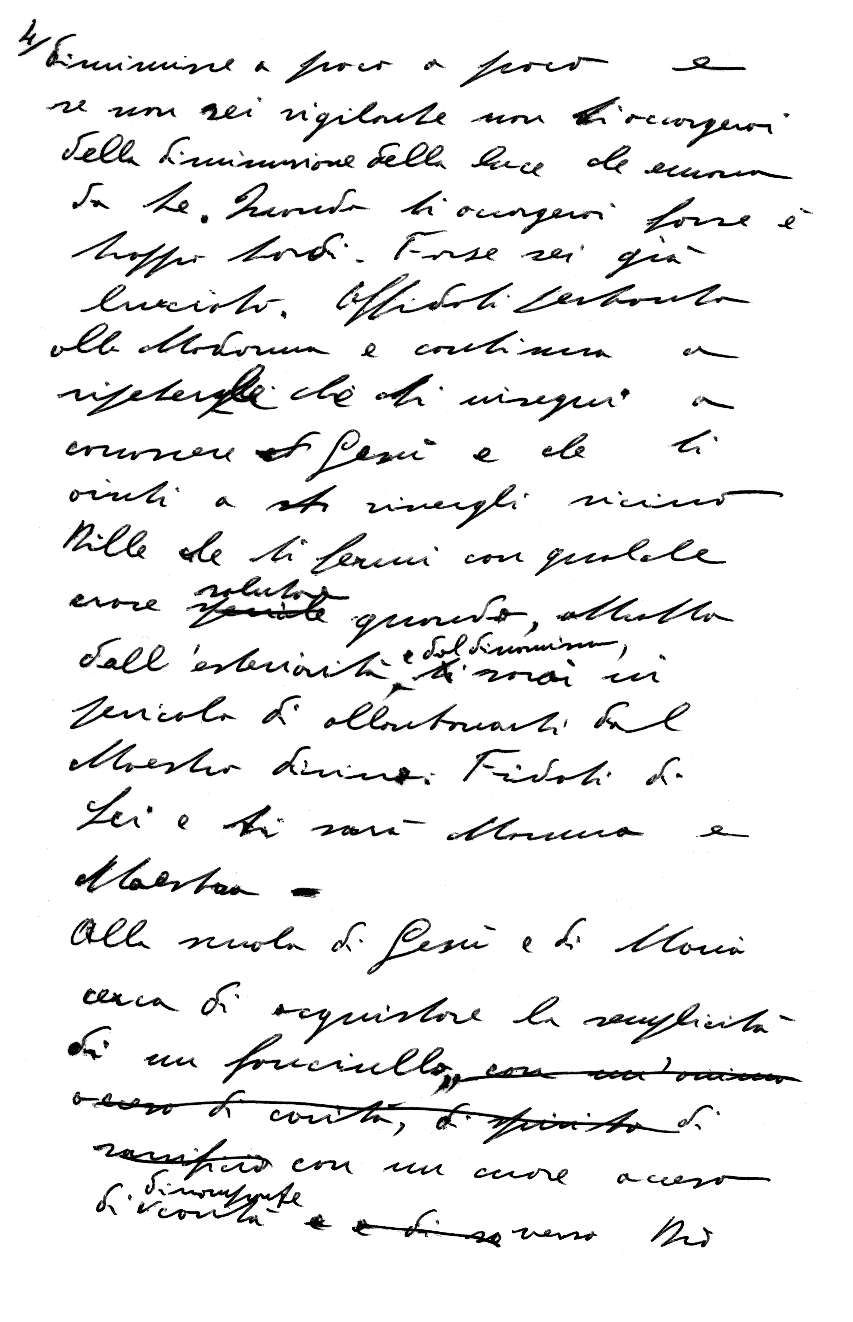 4/
diminuisce a poco a poco e
se non sei vigilante non ti accorgeroi
della diminuzione della luce che emana
da te. Quando ti accorgeroi forse è
troppo tardi. Forse sei già
bruciato. Affidati pertanto
alla Madonna e continua a
ripetergli che ti insegni a
conoscere Gesù e che ti
aiuti a rimergli vicino
Mille che ti fermi con qualche
croce salutare quando, attratto
dall'esteriorità e dal dinamismo, sarai in
pericolo di allontanarti dal
Maestro divino. Fidati di
Lei e ti sarà Mamma e
Maestra -
Alla scuola di Gesù e di Maria
cerca di acquistare la semplicità
di un fanciullo, con un'animo
acceso di carità, di spirito di
sacrificio con un cuore acceso
di carità e e di se verso Dio